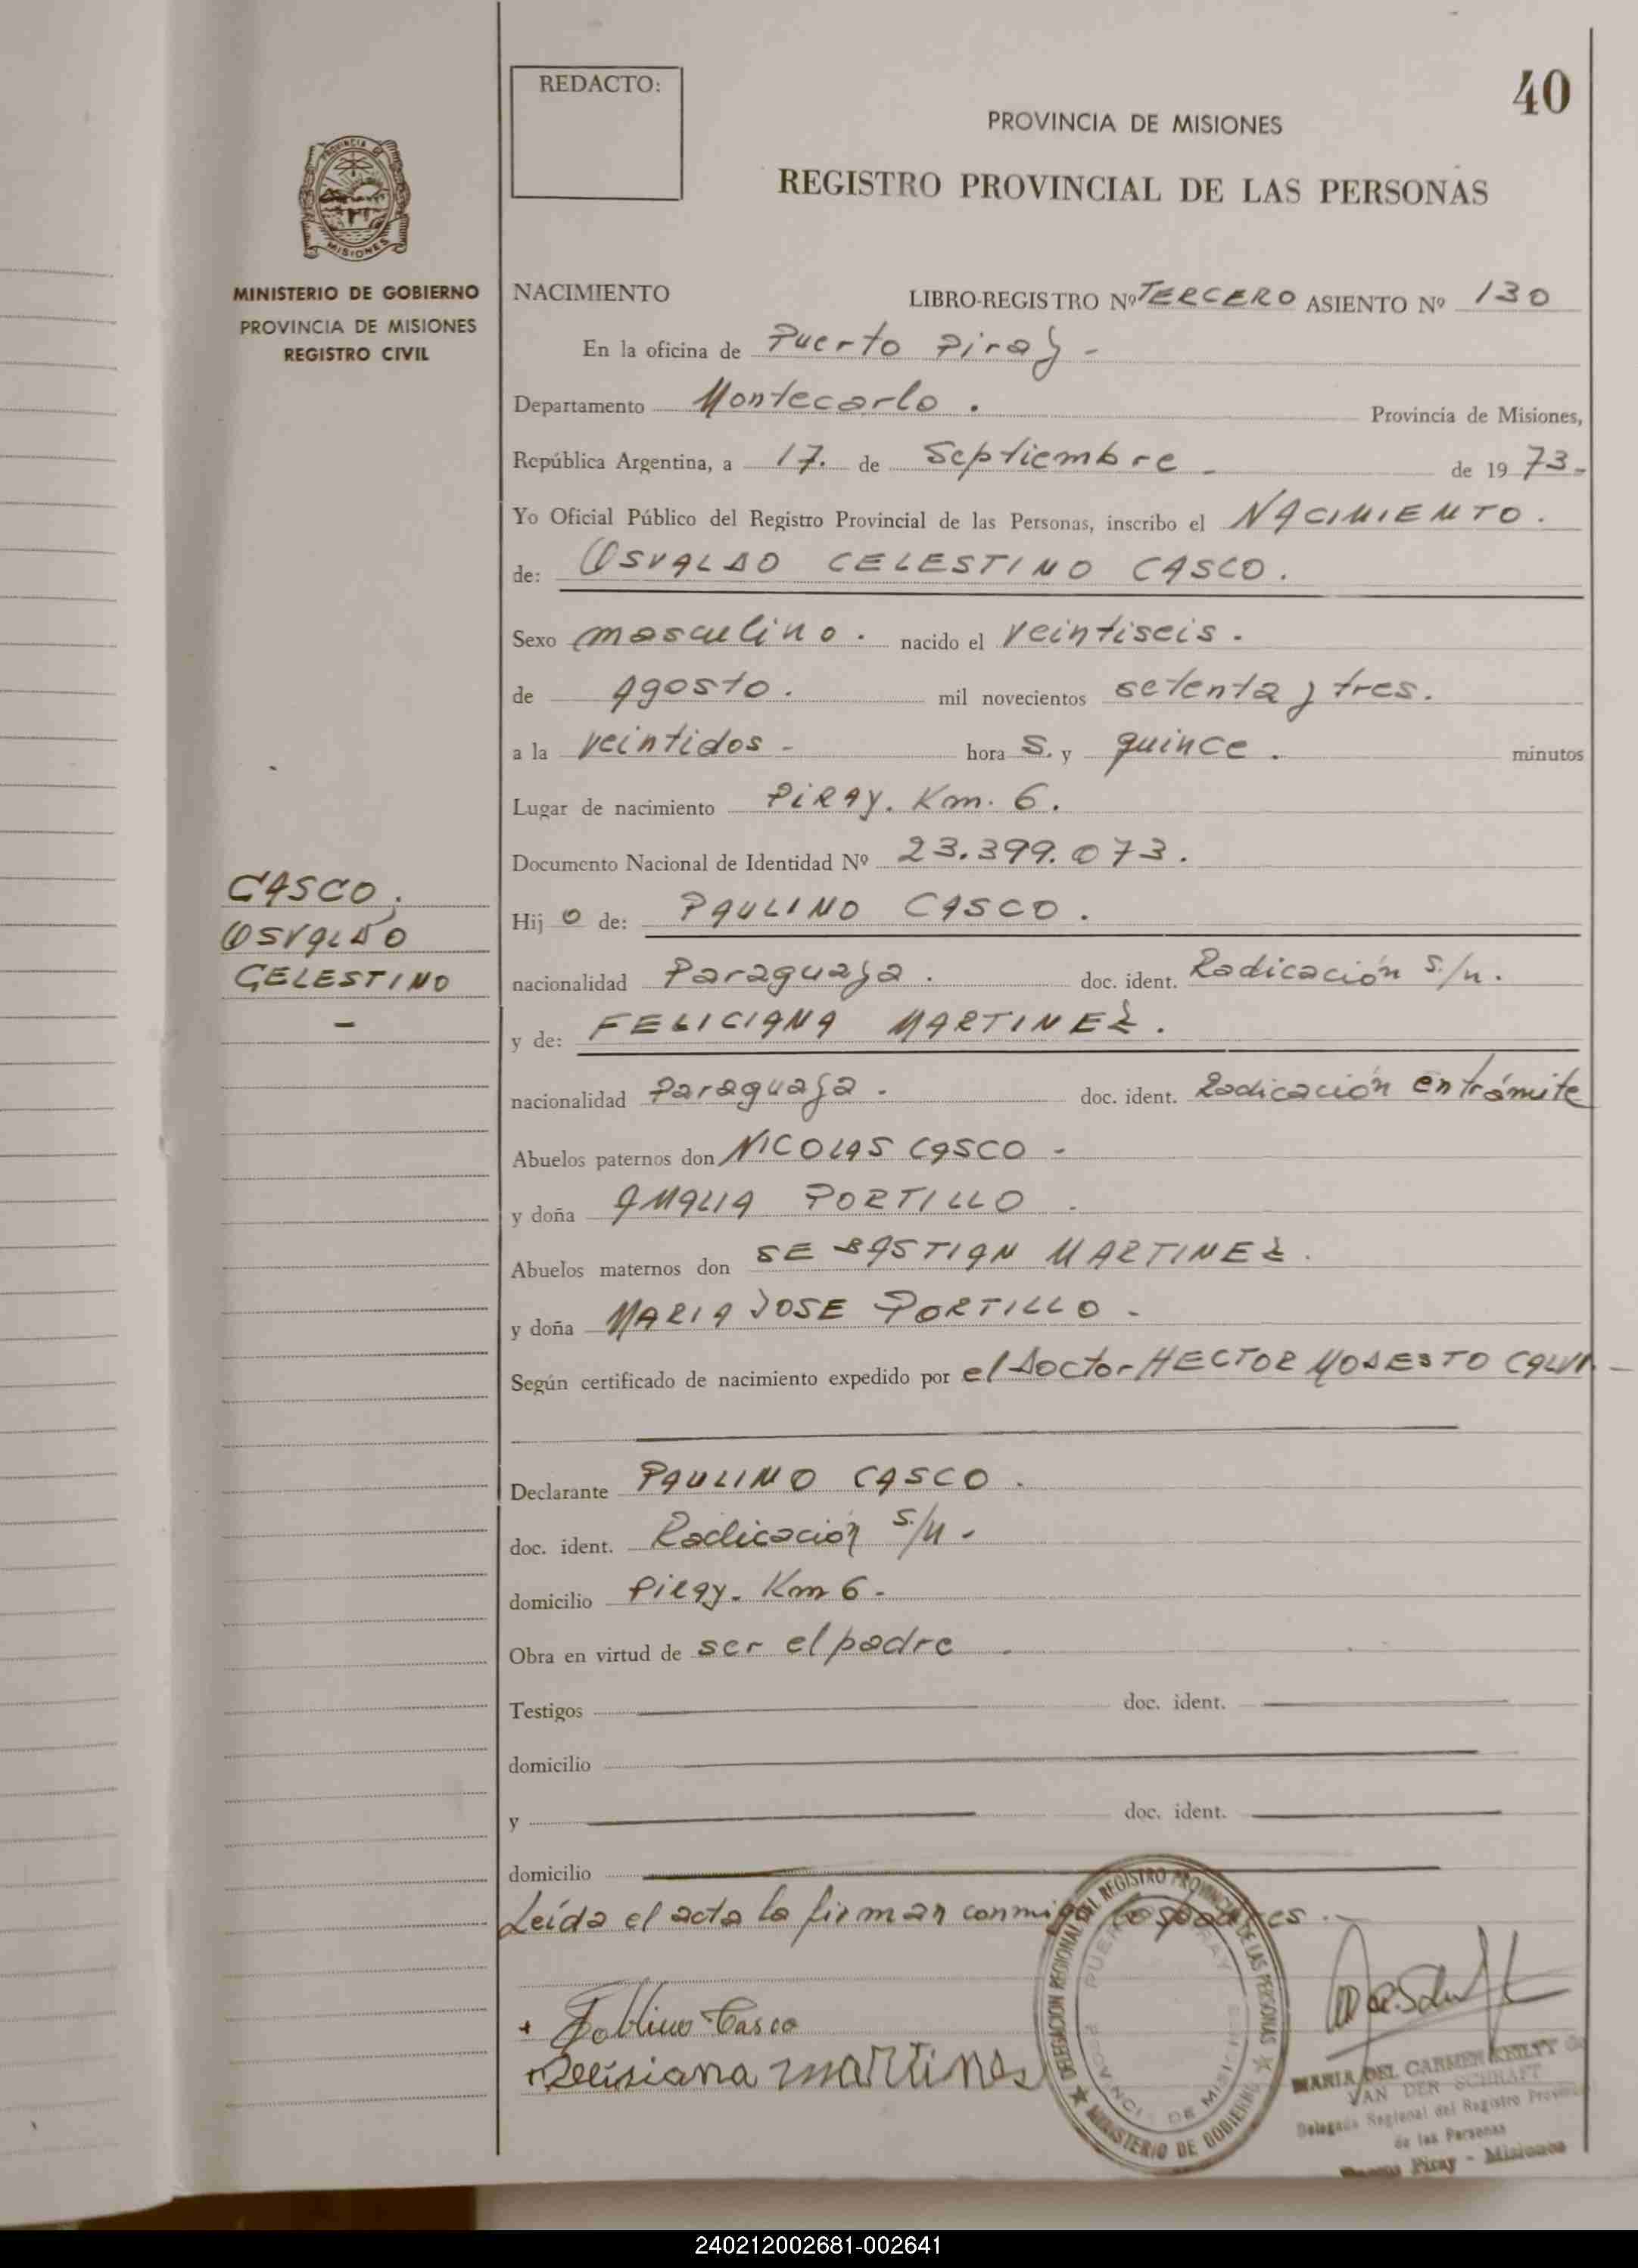 40
REDACTO:
PROVINCIA DE MISIONES
REGISTRO PROVINCIAL DE LAS PERSONAS
PROVINCIA DE
MISIONES
MINISTERIO DE GOBIERNO
PROVINCIA DE MISIONES
REGISTRO CIVIL
NACIMIENTO LIBRO-REGISTRO Nº TERCERO ASIENTO Nº 130
En la oficina de Puerto Piray -
Departamento Montecarlo. Provincia de Misiones,
República Argentina, a 17. de Septiembre - de 1973-
Yo Oficial Público del Registro Provincial de las Personas, inscribo el NACIMIENTO.
de: OSVALDO CELESTINO CASCO.
Sexo masculino. nacido el veintiseis.
de Agosto. mil novecientos setenta y tres.
a la veintidos - hora S. y quince. minutos
Lugar de nacimiento PIRAY. Km. 6.
Documento Nacional de Identidad Nº 23.399.073.
CASCO,
OSVALDO
CELESTINO
-
Hij o de: PAULINO CASCO.
nacionalidad Paraguaya. doc. ident. Radicación s/n.
y de: FELICIANA MARTINEZ.
nacionalidad Paraguaya. doc. ident. Radicación en trámite
Abuelos paternos don NICOLAS CASCO -
y doña AMALIA PORTILLO.
Abuelos maternos don SEBASTIAN MARTINEZ.
y doña MARIA JOSE PORTILLO -
Según certificado de nacimiento expedido por el Doctor HECTOR MODESTO
Declarante PAULINO CASCO.
doc. ident. Radicación s/n -
domicilio Piray. Km 6-
Obra en virtud de ser el padre.
Testigos doc. ident.
domicilio
y doc. ident.
domicilio
Leída el acta la firman conmigo los padres.-
Casco
martines
DELEGACION REGIONAL DEL REGISTRO PROVINCIAL DE LAS PERSONAS
MINISTERIO DE GOBIERNO
PUERTO PIRAY
PROVINCIA DE MISIONES
MARIA DEL CARMEN KEILTY de
VAN DER SCHRAFT
Delegada Regional del Registro Provincial
de las Personas
Piray - Misiones
240212002681-002641